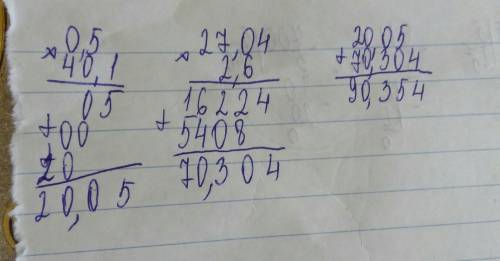 0,5
× 40,1
05
+ 00
20
20,05
27,04
× 2,6
16224
+ 5408
70,304
20,05
+ 70,304
90,354